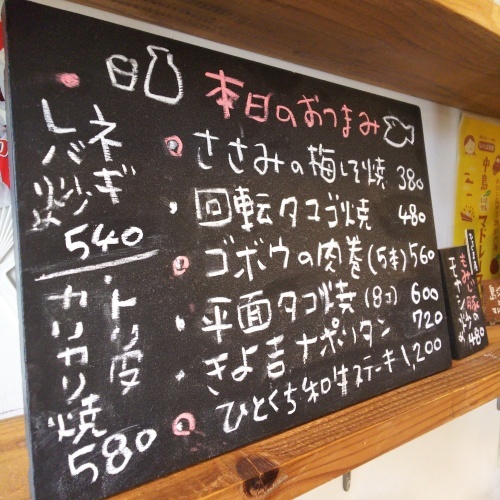 本日のおつまみ
ささみの梅しそ焼 380
回転タコ焼 480
ゴボウの肉巻(5本) 560
平面タコ焼(8コ) 600
きよ吉ナポリタン 720
ひとくち和牛ステーキ 1,200
ネギ
レバ炒
540
トリ皮
カリカリ焼
580
モヤシ炒め
480
中島
マドレ